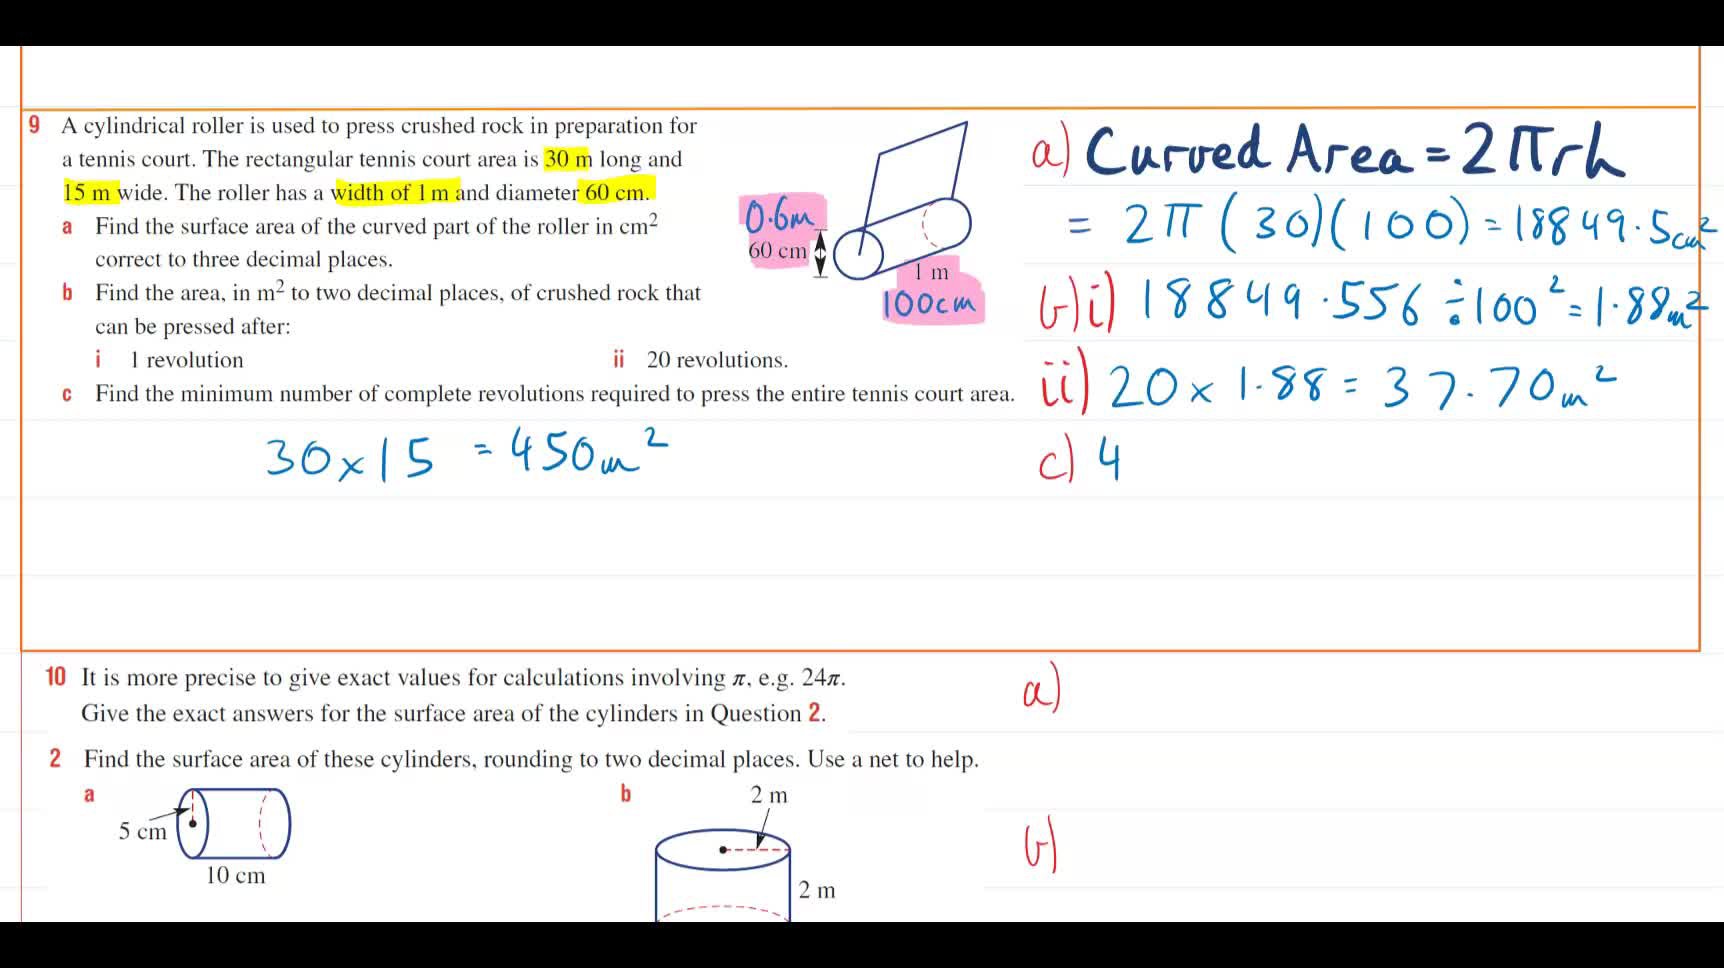 9 A cylindrical roller is used to press crushed rock in preparation for
a tennis court. The rectangular tennis court area is 30 m long and
15 m wide. The roller has a width of 1 m and diameter 60 cm.
a Find the surface area of the curved part of the roller in cm²
correct to three decimal places.
b Find the area, in m² to two decimal places, of crushed rock that
can be pressed after:
i 1 revolution ii 20 revolutions.
c Find the minimum number of complete revolutions required to press the entire tennis court area.
30 × 15 = 450m²
0.6m
60 cm
1 m
100cm
a) Curved Area = 2πrh
= 2π(30)(100) = 18849.5cm²
b)i) 18849.556 ÷ 100² = 1.88m²
ii) 20 × 1.88 = 37.70m²
c) 4
10 It is more precise to give exact values for calculations involving π, e.g. 24π.
Give the exact answers for the surface area of the cylinders in Question 2.
a)
2 Find the surface area of these cylinders, rounding to two decimal places. Use a net to help.
a
5 cm
10 cm
b
2 m
2 m
b)